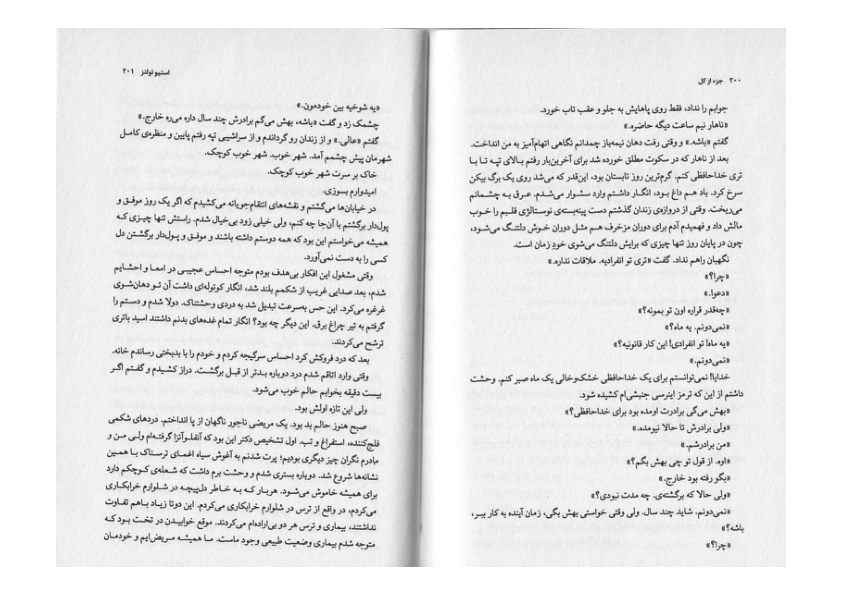 ۲۰۰ جزء از کل
جوابم را نداد، فقط روی پاهایش به جلو و عقب تاب خورد.
«ناهار نیم ساعت دیگه حاضره.»
گفتم «باشه.» و وقتی رفت دهان نیمه‌باز چمدانم نگاهی اتهام‌آمیز به من انداخت.
بعد از ناهار که در سکوت مطلق خورده شد برای آخرین‌بار رفتم بالای تپه تا با
تری خداحافظی کنم. گرم‌ترین روز تابستان بود، این‌قدر که می‌شد روی یک برگ بیکن
سرخ کرد. باد هم داغ بود، انگار داشتم وارد سشوار می‌شدم. عرق به چشمانم
می‌ریخت. وقتی از دروازه‌ی زندان گذشتم دست پینه‌بسته‌ی نوستالژی قلبم را خوب
مالش داد و فهمیدم آدم برای دوران مزخرف هم مثل دوران خوش دلتنگ می‌شود،
چون در پایان روز تنها چیزی که برایش دلتنگی می‌شوی خودِ زمان است.
نگهبان راهم نداد. گفت «تری تو انفرادیه. ملاقات نداره.»
«چرا؟»
«دعوا.»
«چه‌قدر قراره اون تو بمونه؟»
«نمی‌دونم. یه ماه؟»
«یه ماه! تو انفرادی! این کار قانونیه؟»
«نمی‌دونم.»
خدایا! نمی‌توانستم برای یک خداحافظی خشک‌وخالی یک ماه صبر کنم. وحشت
داشتم از این که ترمز اینرسی جنبشی‌ام کشیده شود.
«بهش می‌گی برادرت اومده بود برای خداحافظی؟»
«ولی برادرش تا حالا نیومده.»
«من برادرشم.»
«اوه. از قول تو چی بهش بگم؟»
«بگو رفته بود خارج.»
«ولی حالا که برگشته‌ی. چه مدت نبودی؟»
«نمی‌دونم. شاید چند سال. ولی وقتی خواستی بهش بگی، زمان آینده به کار ببر،
باشه؟»
«چرا؟»
استیو تولتز ۲۰۱
«یه شوخیه بین خودمون.»
چشمک زد و گفت «باشه، بهش می‌گم برادرش چند سال داره می‌ره خارج.»
گفتم «عالی.» و از زندان رو گرداندم و از سراشیبی تپه رفتم پایین و منظره‌ی کامل
شهرمان پیش چشمم آمد. شهر خوب. شهر خوب کوچک.
خاک بر سرت شهر خوب کوچک.
امیدوارم بسوزی.
در خیابان‌ها می‌گشتم و نقشه‌های انتقام‌جویانه می‌کشیدم که اگر یک روز موفق و
پول‌دار برگشتم با آن‌جا چه کنم، ولی خیلی زود بی‌خیال شدم. راستش تنها چیزی که
همیشه می‌خواستم این بود که همه دوستم داشته باشند و موفق و پول‌دار برگشتن دل
کسی را به دست نمی‌آورد.
وقتی مشغول این افکار بی‌هدف بودم متوجه احساس عجیبی در امعا و احشایم
شدم، بعد صدایی غریب از شکمم بلند شد، انگار کوتوله‌ای داشت آن تو دهان‌شوی
غرغره می‌کرد. این حس به‌سرعت تبدیل شد به دردی وحشتناک. دولا شدم و دستم را
گرفتم به تیر چراغ برق. این دیگر چه بود؟ انگار تمام غده‌های بدنم داشتند اسید باتری
ترشح می‌کردند.
بعد که درد فروکش کرد احساس سرگیجه کردم و خودم را با بدبختی رساندم خانه.
وقتی وارد اتاقم شدم درد دوباره بدتر از قبل برگشت. دراز کشیدم و گفتم اگر
بیست دقیقه بخوابم حالم خوب می‌شود.
ولی این تازه اولش بود.
صبح هنوز حالم بد بود. یک مریضی ناجور ناگهان از پا انداختم. دردهای شکمی
فلج‌کننده، استفراغ و تب. اول تشخیص دکتر این بود که آنفلوآنزا گرفته‌ام ولی من و
مادرم نگران چیز دیگری بودیم؛ پرت شدنم به آغوش سیاه اغمای ترسناک با همین
نشانه‌ها شروع شد. دوباره بستری شدم و وحشت برم داشت که شعله‌ی کوچکم دارد
برای همیشه خاموش می‌شود. هربار که به خاطر دل‌پیچه در شلوارم خرابکاری
می‌کردم، در واقع از ترس در شلوارم خرابکاری می‌کردم. این دوتا زیاد با هم تفاوت
نداشتند، بیماری و ترس هر دو بی‌اراده‌ام می‌کردند. موقع خوابیدن در تخت بود که
متوجه شدم بیماری وضعیت طبیعی وجود ماست. ما همیشه مریض‌ایم و خودمان